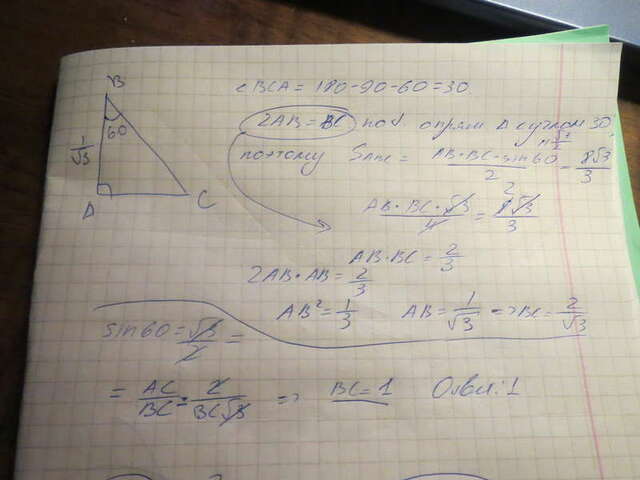 B
60
1/√3
A
C
∠BCA = 180-90-60=30.
2AB=BC по в опрям Δ с углом 30,
поэтому SАВС = AB·BC·sin60/2 = 8√3/3
AB·BC·√3/4 = 8√3/3
AB·BC = 2/3
2AB·AB = 2/3
AB² = 1/3 AB = 1/√3 => BC = 2/√3
sin60 = √3/2 =
= AC/BC = 2/BC√3 => BC = 1 Ответ: 1